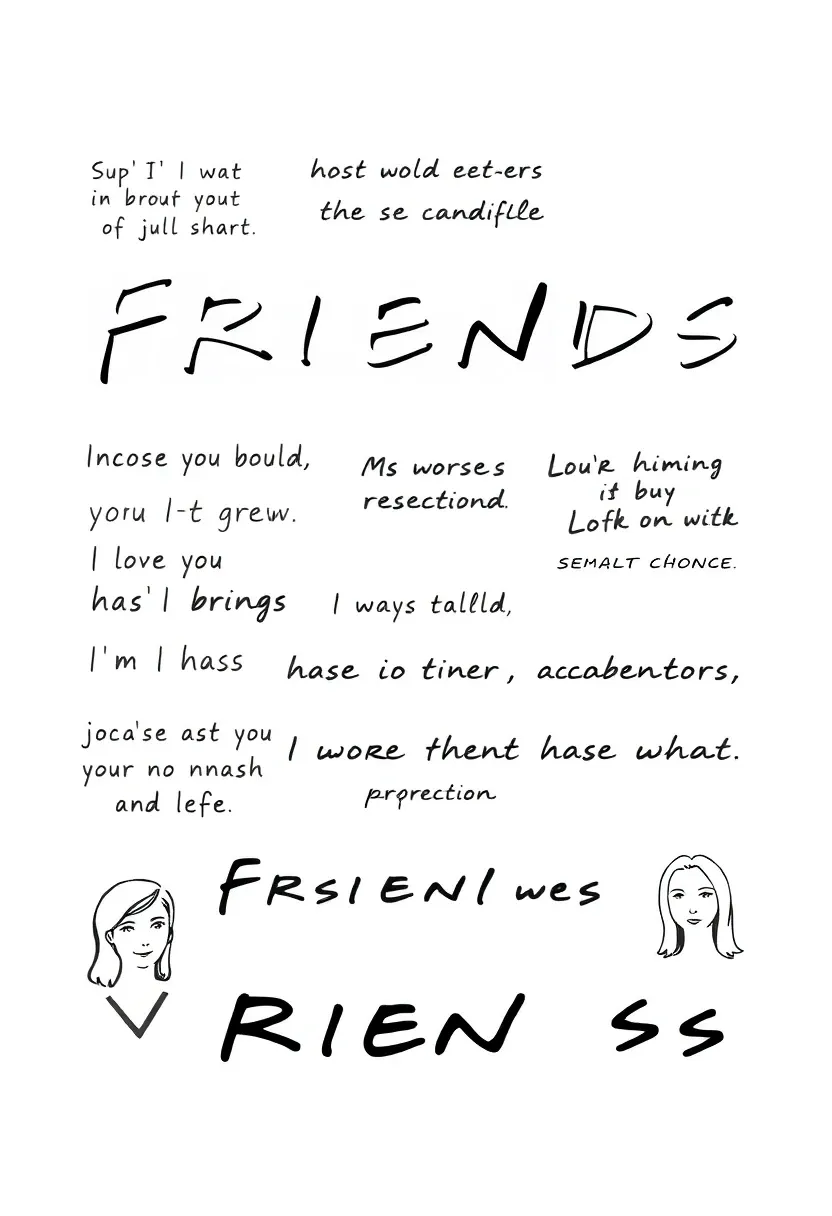 Sup' I' I wat
in brout yout
of jull shart.
host wold eet-ers
the se candiflle
FRIENDS
Incose you bould,
yoru I-t grew.
I love you
has' I brings
Ms worses
resectiond.
Lou'r himing
it buy
Lofk on witk
SEMALT CHONCE.
I ways tallld,
I'm I hass
hase io tiner, accabentors,
joca'se ast you
your no nnash
and lefe.
I wore thent hase what.
prprection
FRSIENI wes
RIEN SS